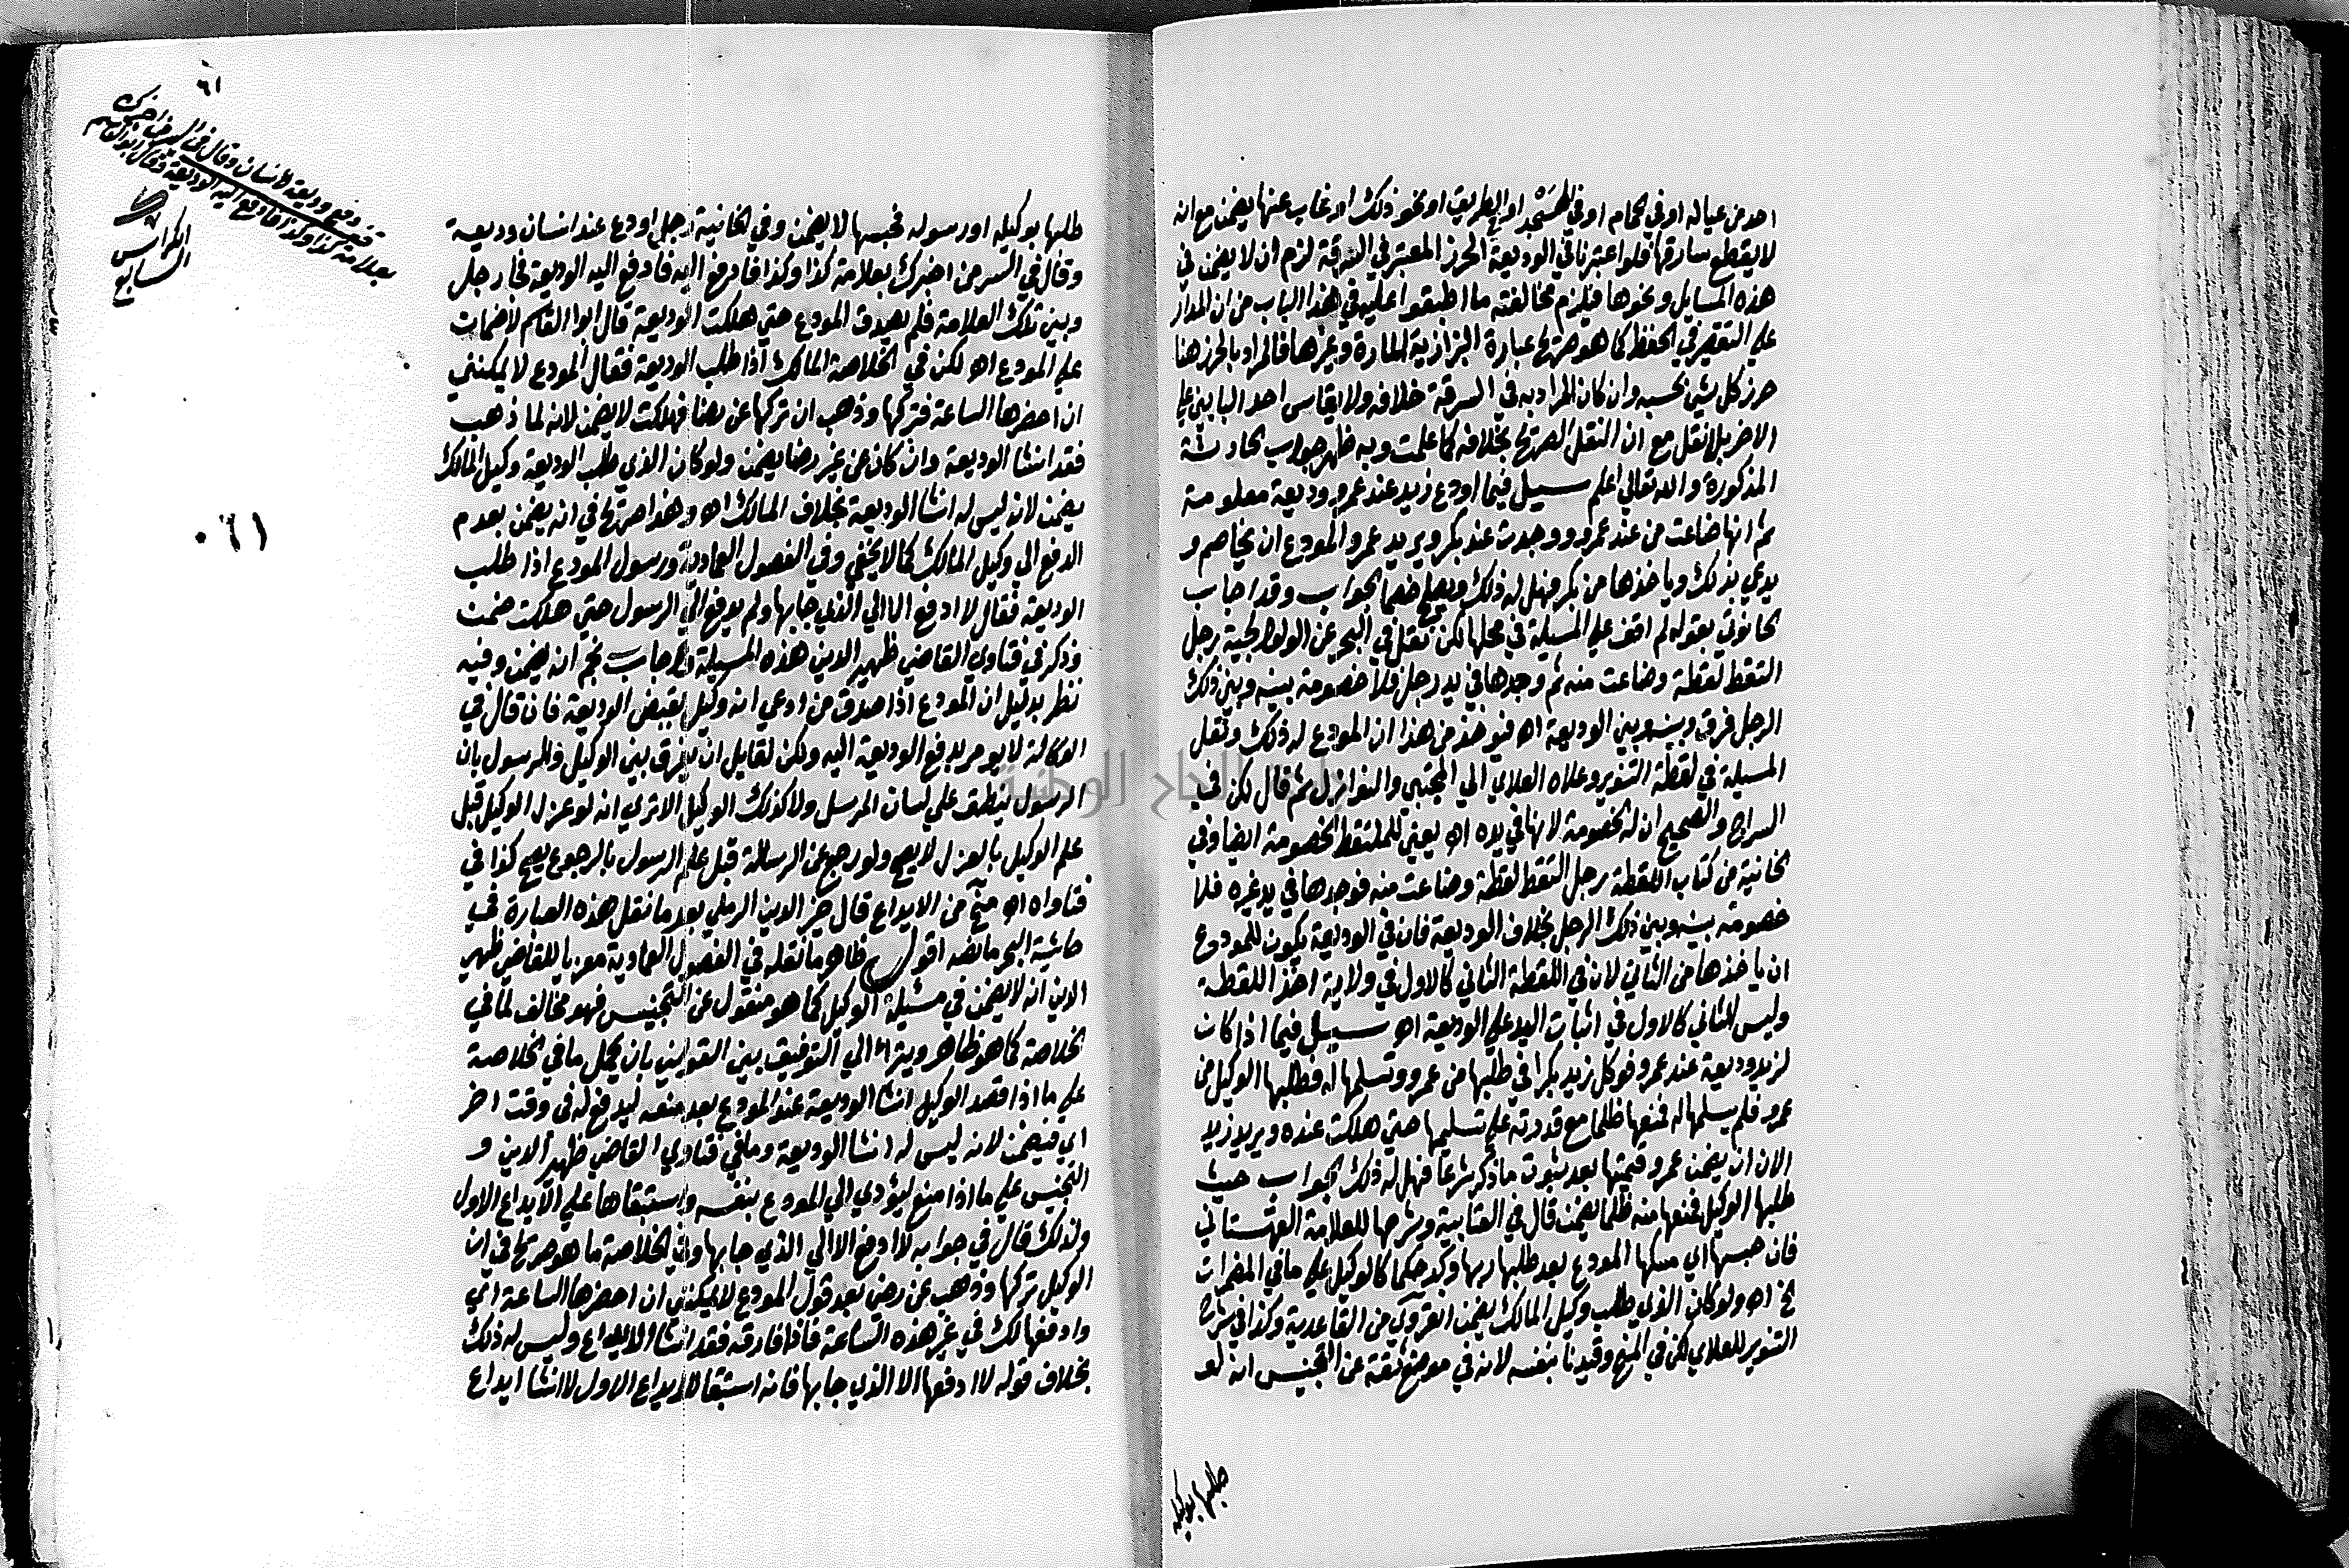 احد من عياله او في الحمام او في المسجد او الطريق او نحو ذلك او غاب عنها يضمن مع انه
لا يقطع سارقها فلو اعتبرنا في الوديعة الحرز المعتبر في السرقة لزم ان لا يضمن في
هذه المسايل ونحوها فيلزم مخالفته ما اطبقوا عليه في هذا الباب من ان المدار
علي التقصير في الحفظ كما هو صريح عبارة البزازية المارة وغيرها فالمراد بالحرز هنا
حرز كل شي بحسبه وان كان المراد به في السرقة خلافه ولا يقاس احد البابين علي
الاخر بلا نقل مع ان النقل الصريح بخلافه كما علمت وبه ظهر جواب الحادثة
المذكورة والله تعالي اعلم سيل فيما اودع زيد عند عمرو وديعة معلومة
ثم انها ضاعت من عند عمرو ووجدت عند بكر ويريد عمرو المودع ان يخاصم و
يدعي بذلك وياخذها من بكر فهل له ذلك ويصلح خصما الجواب وقد اجاب
الحانوتي بقوله لم اقف علي المسيلة في محلها لكن نقل في البحر عن الولوالجية رجل
التقط لقطة وضاعت منه ثم وجدها في يد رجل فلا خصومة بينه وبين ذلك
الرجل فرق بينه وبين الوديعة اه فيوخذ من هذا ان المودع له ذلك ونقل
المسيلة في لقطة التنوير وعلاه العلاي الي المجتبي والنوازل ثم قال لكن في
السراج والصحيح ان له الخصومة لانها في يده اه يعني للملتقط الخصومة ايضا وفي
الخانية من كتاب اللقطة رجل التقط لقطة وضاعت منه فوجدها في يد غيره فلا
خصومة بينه وبين ذلك الرجل بخلاف الوديعة فان في الوديعة يكون للمودع
ان ياخذها من الثاني لان في اللقطة الثاني كالاول في ولاية اخذ اللقطة
وليس الثاني كالاول في اثبات اليد علي الوديعة اه سيل فيما اذا كان
لزيد وديعة عند عمرو فوكل زيد بكرا في طلبها من عمرو وتسلمها له فطلبها الوكيل من
عمرو فلم يسلمها له فمنعها ظلما مع قدرته علي تسليمها حتي هلكت عنده ويريد زيد
الان ان يضمن عمرو قيمتها بعد ثبوت ما ذكر شرعا فهل له ذلك الجواب حيث
طلبها الوكيل فمنعها منه ظلما يضمن قال في النقاية وشرحها للعلامة القهستاني
فان حبسها اي مسكها المودع بعد طلبها ربها ولو حكما كالوكيل علي ما في المضمرات
الخ اه ولو كان الذي طلب وكيل المالك يضمن من القاعدية وكذا في شرح
التنوير للعلاي لكن في المنح وقيدنا بنفسه لانه في موضع ثقة عن التجنيس انه لو
طلبها بوكيله
٦١
قنية دفع وديعة لانسان وقال في السر من اخبرك
بعلامة كذا وكذا فادفع اليه الوديعة وقال ابو القاسم
الكراس
السابع
٠٦١
طلبها بوكيله او رسوله فحبسها لا يضمن وفي الخانية رجل اودع عند انسان وديعة
وقال في السر من اخبرك بعلامة كذا وكذا فادفع اليه الوديعة فجا رجل
وبين تلك العلامة فلم يصدق المودع حتي هلكت الوديعة قال ابو القاسم لا ضمان
علي المودع اه لكن في الخلاصة المالك اذا طلب الوديعة فقال المودع لا يمكنني
ان احضرها الساعة فتركها وذهب ان تركها عن رضا فهلكت لا يضمن لانه لما ذهب
فقد انشا الوديعة وان كان عن غير رضا يضمن ولو كان الذي طلب الوديعة وكيل المالك
يضمن لانه ليس له انشا الوديعة بخلاف المالك اه وهذا صريح في انه يضمن بعدم
الدفع الي وكيل المالك كما لا يخفي وفي الفصول العمادية ورسول المودع اذا طلب
الوديعة فقال لا ادفع الا الي الذي جا بها ولم يدفع الي الرسول حتي هلكت ضمنت
وذكر في فتاوي القاضي ظهير الدين هذه المسيلة واجاب نجم انه يضمن وفيه
نظر بدليل ان المودع اذا صدق من ادعي انه وكيل بقبض الوديعة فانه قال في
الوكالة لا يومر بدفع الوديعة اليه ولكن لقايل ان يفرق بين الوكيل والرسول بان
الرسول ينطق علي لسان المرسل ولا كذلك الوكيل الا تري انه لو عزل الوكيل قبل
علم الوكيل بالعزل لا يصح ولو رجع عن الرسالة قبل علم الرسول بالرجوع يصح كذا في
فتاواه اه منح من الايداع قال خير الدين الرملي بعد ما نقل هذه العبارة في
حاشية البحر ما نصه اقول ظاهر ما نقله في الفصول العمادية معزيا للقاضي ظهير
الدين انه لا يضمن في مسئلة الوكيل كما هو منقول عن التجنيس فهو مخالف لما في
الخلاصة كما هو ظاهر ويترااي التوفيق بين القولين بان يحمل ما في الخلاصة
علي ما اذا قصد الوكيل انشا الوديعة عند المودع بعد منعه ليدفع له في وقت اخر
اي فيضمن لانه ليس له انشا الوديعة وما في فتاوي القاضي ظهير الدين و
التجنيس علي ما اذا منع ليؤدي الي المودع بنفسه واستبقاها علي الايداع الاول
ولذلك قال في جوابه لا ادفع الا الي الذي جا بها وفي الخلاصة ما هو صريح في ان
الوكيل تركها وذهب عن رضي بعد قول المودع لا يمكنني ان احضرها الساعة اي
وادفعها لك في غير هذه الساعة فاذا فارقه فقد انشا الايداع وليس له ذلك
بخلاف قوله لا ادفعها الا للذي جا بها فانه استبقا للايداع الاول لا انشا ايداع